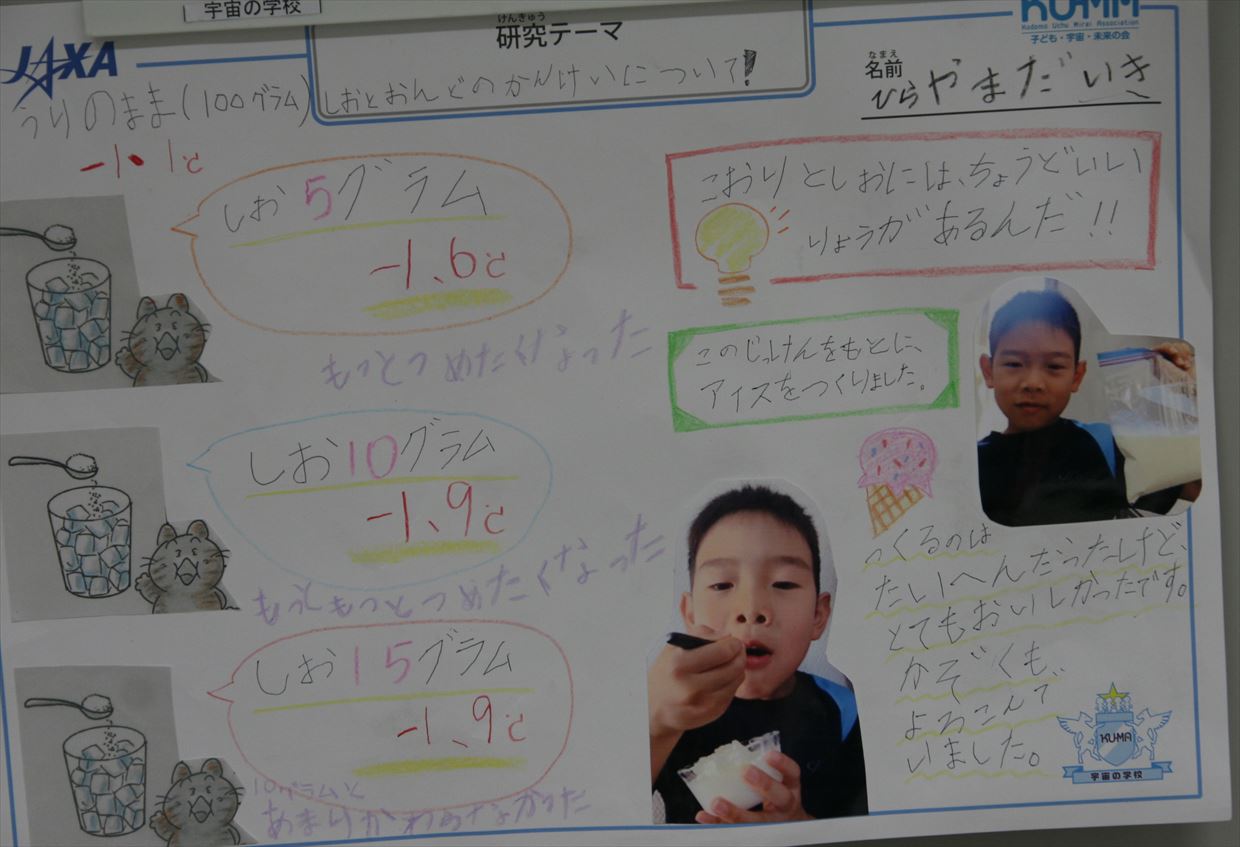 宇宙の学校
JAXA
けんきゅう
研究テーマ
しおとおんどのかんけいについて!
KUMM
Kodomo Uchu Mirai Association
子ども・宇宙・未来の会
なまえ
名前
ひらやまだいき
うりのまま(100グラム)
-1.1℃
しお5グラム
-1、6℃
もっとつめたくなった
しお10グラム
-1、9℃
もっともっとつめたくなった
しお15グラム
-1、9℃
10グラムと
あまりかわらなかった
こおりとしおには、ちょうどいい
りょうがあるんだ!!
このじっけんをもとに、
アイスをつくりました。
つくるのは
たいへんだったけど、
とてもおいしかったです。
かぞくも、
よろこんで
いました。
KUMA
宇宙の学校